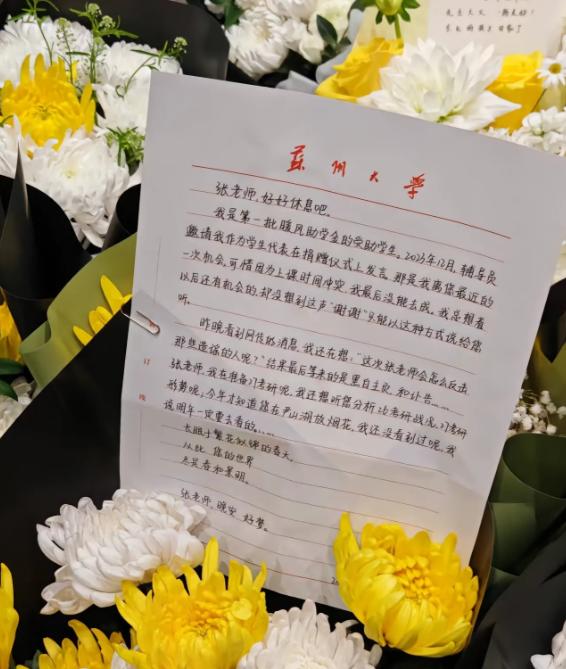 苏州大学
张老师,好好休息吧。
我是第一批暖风助学金的受助学生。2023年12月,辅导员
邀请我作为学生代表在捐赠仪式上发言,那是我离您最近的
一次机会,可惜因为上课时间冲突,我最后没能去成。我总想着
以后还有机会的,却没想到这声“谢谢”只能以这种方式说给您
听。
昨晚看到网传的消息,我还在想:“这次张老师会怎么反击
那些造谣的人呢?”结果最后等来的是黑白主页,和讣告……
张老师,我在准备27考研呢,我还想听您分析26考研战况,27考研
形势呢;今年才知道您在尹山湖放烟花,我还没看到过呢,我
说明年一定要去看的……
长眠于繁花似锦的春天,
从此 您的世界
尽是春和景明。
张老师,晚安 好梦。
订
线